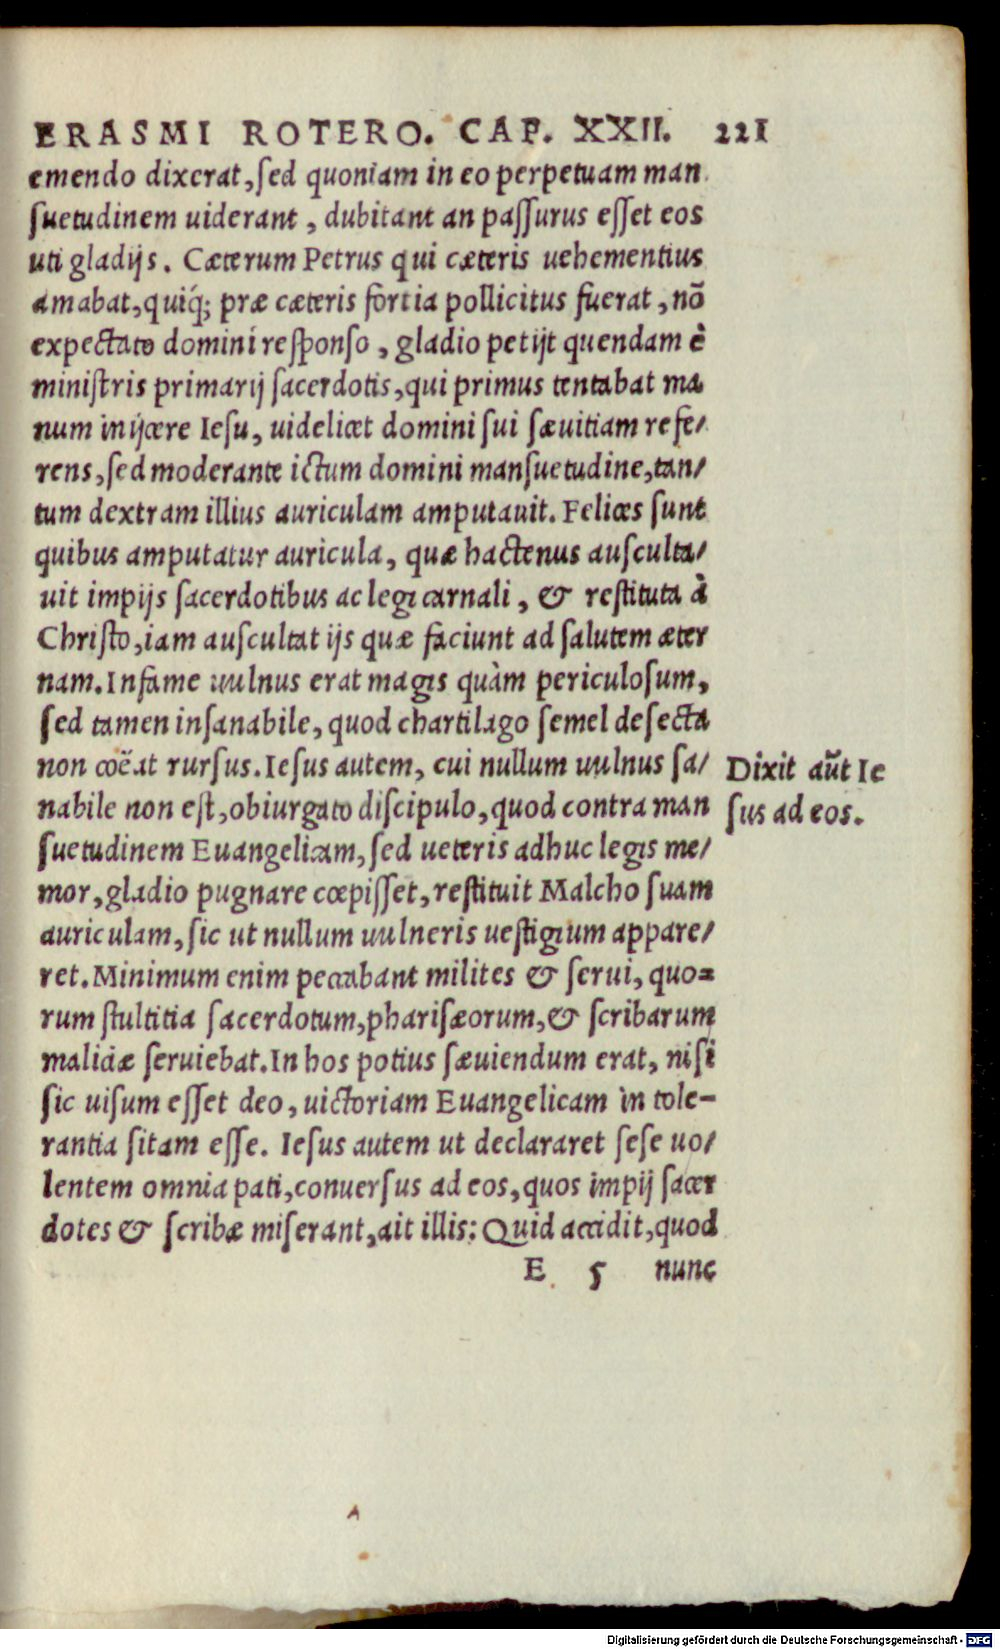 ERASMI ROTERO. CAP. XXII. 221
emendo dixerat, ſed quoniam in eo perpetuam man
ſuetudinem uiderant, dubitant an paſſurus eſſet eos
uti gladijs. Cæterum Petrus qui cæteris uehementius
amabat, quiq́; præ cæteris fortia pollicitus fuerat, nõ
expectato domini reſponſo, gladio petijt quendam è
miniſtris primarij ſacerdotis, qui primus tentabat ma
num inijcere Ieſu, uidelicet domini ſui ſæuitiam refe/
rens, ſed moderante ictum domini manſuetudine, tan/
tum dextram illius auriculam amputauit. Felices ſunt
quibus amputatur auricula, quæ hactenus auſculta/
uit impijs ſacerdotibus ac legi carnali, & reſtituta à
Chriſto, iam auſcultat ijs quæ faciunt ad ſalutem æter
nam. Infame uulnus erat magis quàm periculoſum,
ſed tamen inſanabile, quod chartilago ſemel deſecta
non coëat rurſus. Ieſus autem, cui nullum uulnus ſa/
nabile non eſt, obiurgato diſcipulo, quod contra man
ſuetudinem Euangelicam, ſed ueteris adhuc legis me/
mor, gladio pugnare cœpiſſet, reſtituit Malcho ſuam
auriculam, ſic ut nullum uulneris ueſtigium appare/
ret. Minimum enim peccabant milites & ſerui, quo=
rum ſtultitia ſacerdotum, phariſæorum, & ſcribarum
maliciæ ſeruiebat. In hos potius ſæuiendum erat, niſi
ſic uiſum eſſet deo, uictoriam Euangelicam in tole-
rantia ſitam eſſe. Ieſus autem ut declararet ſeſe uo/
lentem omnia pati, conuerſus ad eos, quos impij ſacer
dotes & ſcribæ miſerant, ait illis: Quid accidit, quod
E 5 nunc
Dixit aũt Ie
ſus ad eos.
Digitalisierung gefördert durch die Deutsche Forschungsgemeinschaft - DFG